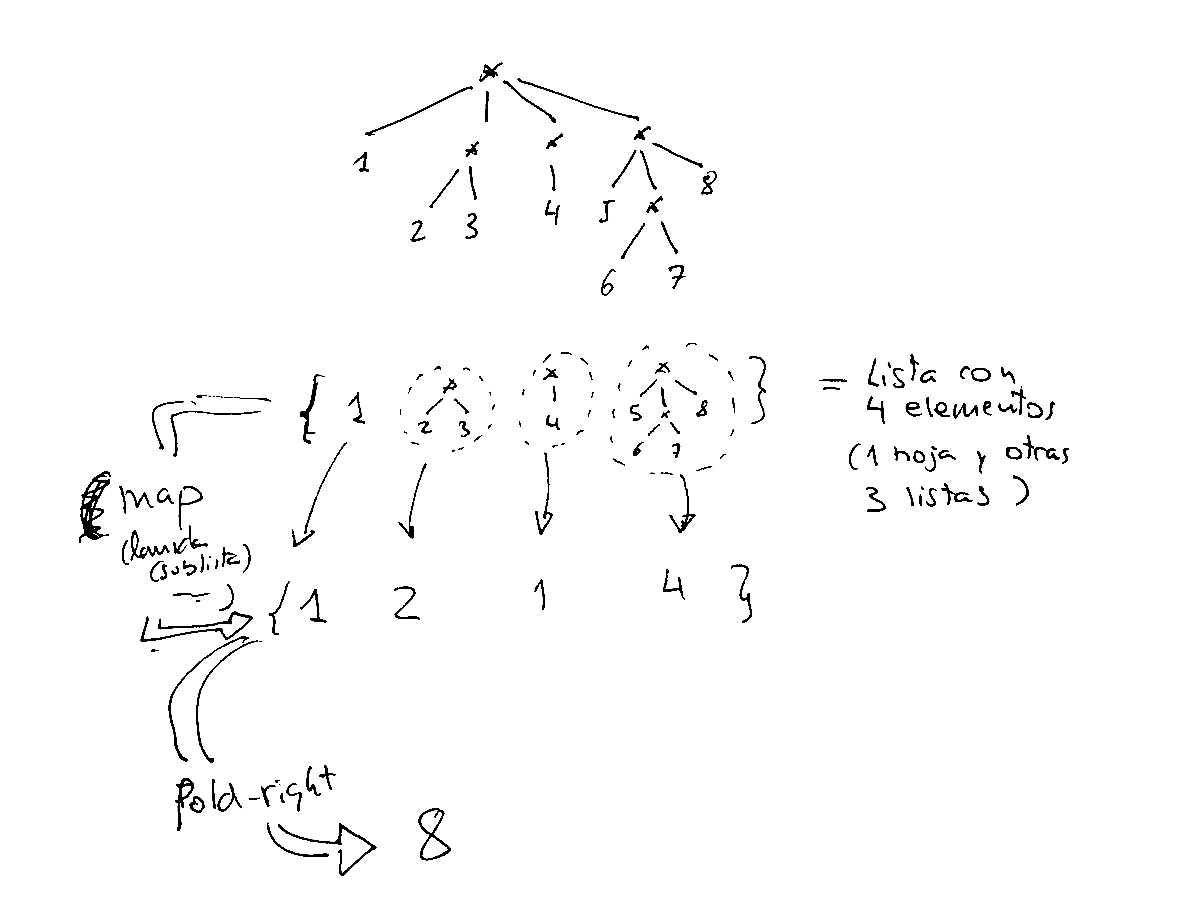 *
1 * * *
2 3 4 5 * 8
6 7
{ 1 * * * }
2 3 4 5 * 8
6 7
= Lista con
4 elementos
(1 hoja y otras
3 listas)
map
(lamda
(sublista)
{ 1 2 1 4 }
fold-right
8